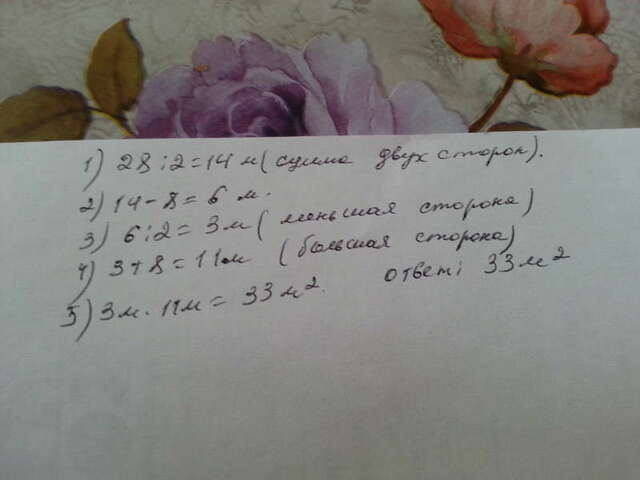 1) 28:2=14 м (сумма двух сторон).
2) 14-8=6 м.
3) 6:2=3м (меньшая сторона)
4) 3+8=11м (большая сторона)
5) 3м·11м=33м². ответ: 33м²